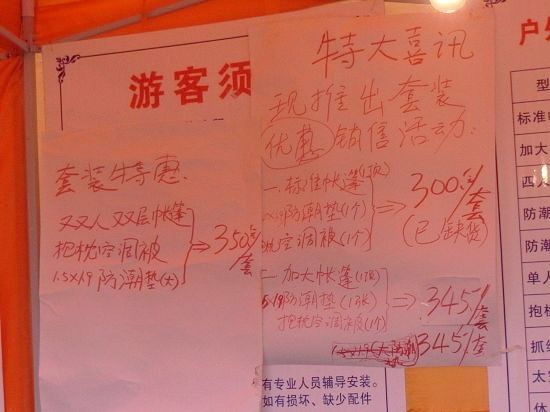 游客须
特大喜讯
现推出套装
优惠销售活动:
一.标准帐篷(1顶)
防潮垫(1个)
抱枕空调被(1个)
300元/套
(已缺货)
一加大帐篷(1顶)
防潮垫(1张)
抱枕空调被(1个)
345元/套
345元/套
套装特惠:
双人双层帐篷
抱枕空调被
1.5×1.9防潮垫(大)
350元/套
有专业人员辅导安装。
如有损坏、缺少配件
户外
型
标准
加大
四人
防潮
防潮
单人
抱枕
抓绒
太空